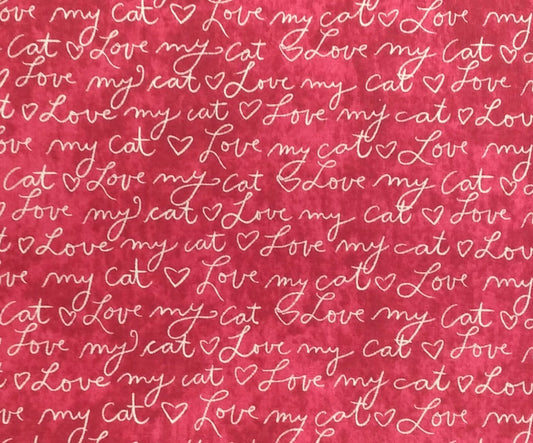 ove my Cat ♡ Love my cat ♡ Love my
Cat ♡ Love my cat ♡ Love my Cat ♡
Love my cat ♡ Love my cat ♡ Love
t ♡ Love my cat ♡ Love my cat ♡ L
ove my cat ♡ Love my cat ♡ Love my
Cat ♡ Love my cat ♡ Love my Cat ♡
Love my cat ♡ Love my cat ♡ Love
t ♡ Love my cat ♡ Love my cat ♡ Lo
ove my Cat ♡ Love my cat ♡ Love my
Cat ♡ Love my cat ♡ Love my Cat ♡
Love my cat ♡ Love my cat ♡ Love
t ♡ Love my cat ♡ Love my cat ♡ Lo
ve my Cat ♡ Love my cat ♡ Love my